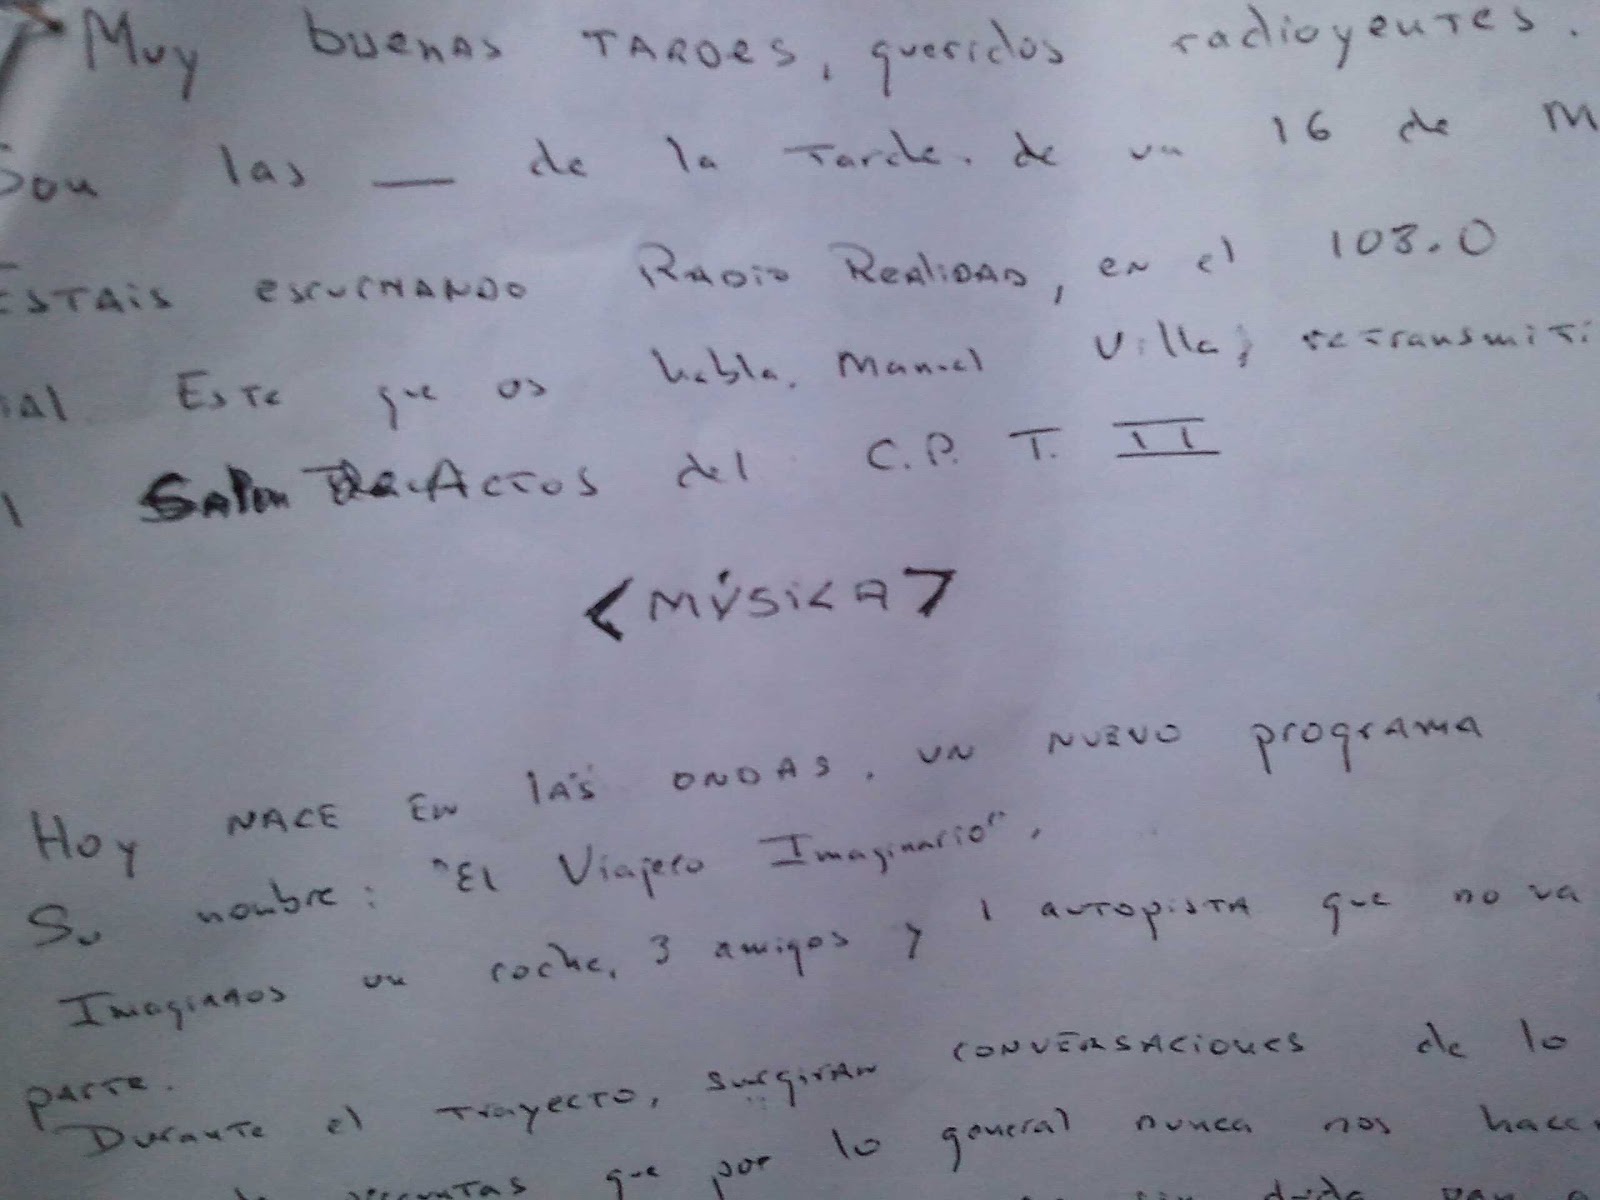 Muy buenas TARDES, queridos radioyentes.
Son las __ de la Tarde. de un 16 de M
ESTAIS escuchando Radio Realidad, en el 103.0
ial Este que os habla, Manuel Villa, retransmiti
l Salon De Actos del C.P.T. II
<MÚSIKA>
Hoy NACE EN las ONDAS, UN NUEVO programa
Su nombre: "El Viajero Imaginario".
Imaginaos un coche, 3 amigos y 1 autopista que no va
parte.
Durante el trayecto, surgiran conversaciones de lo
preguntas que por lo general nunca nos hace
sin duda